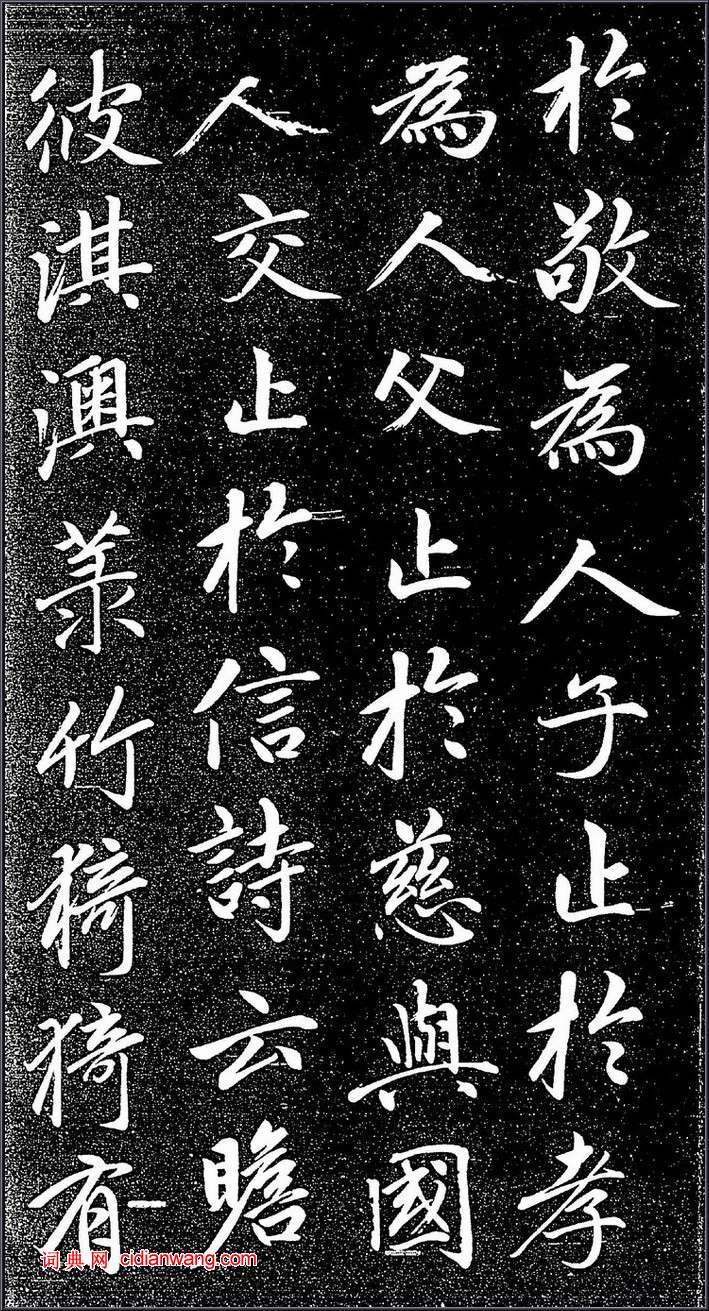 於敬為人子止於孝
為人父止於慈與國
人交止於信詩云瞻
彼淇澳菉竹猗猗有
词典网 cidianwang.com